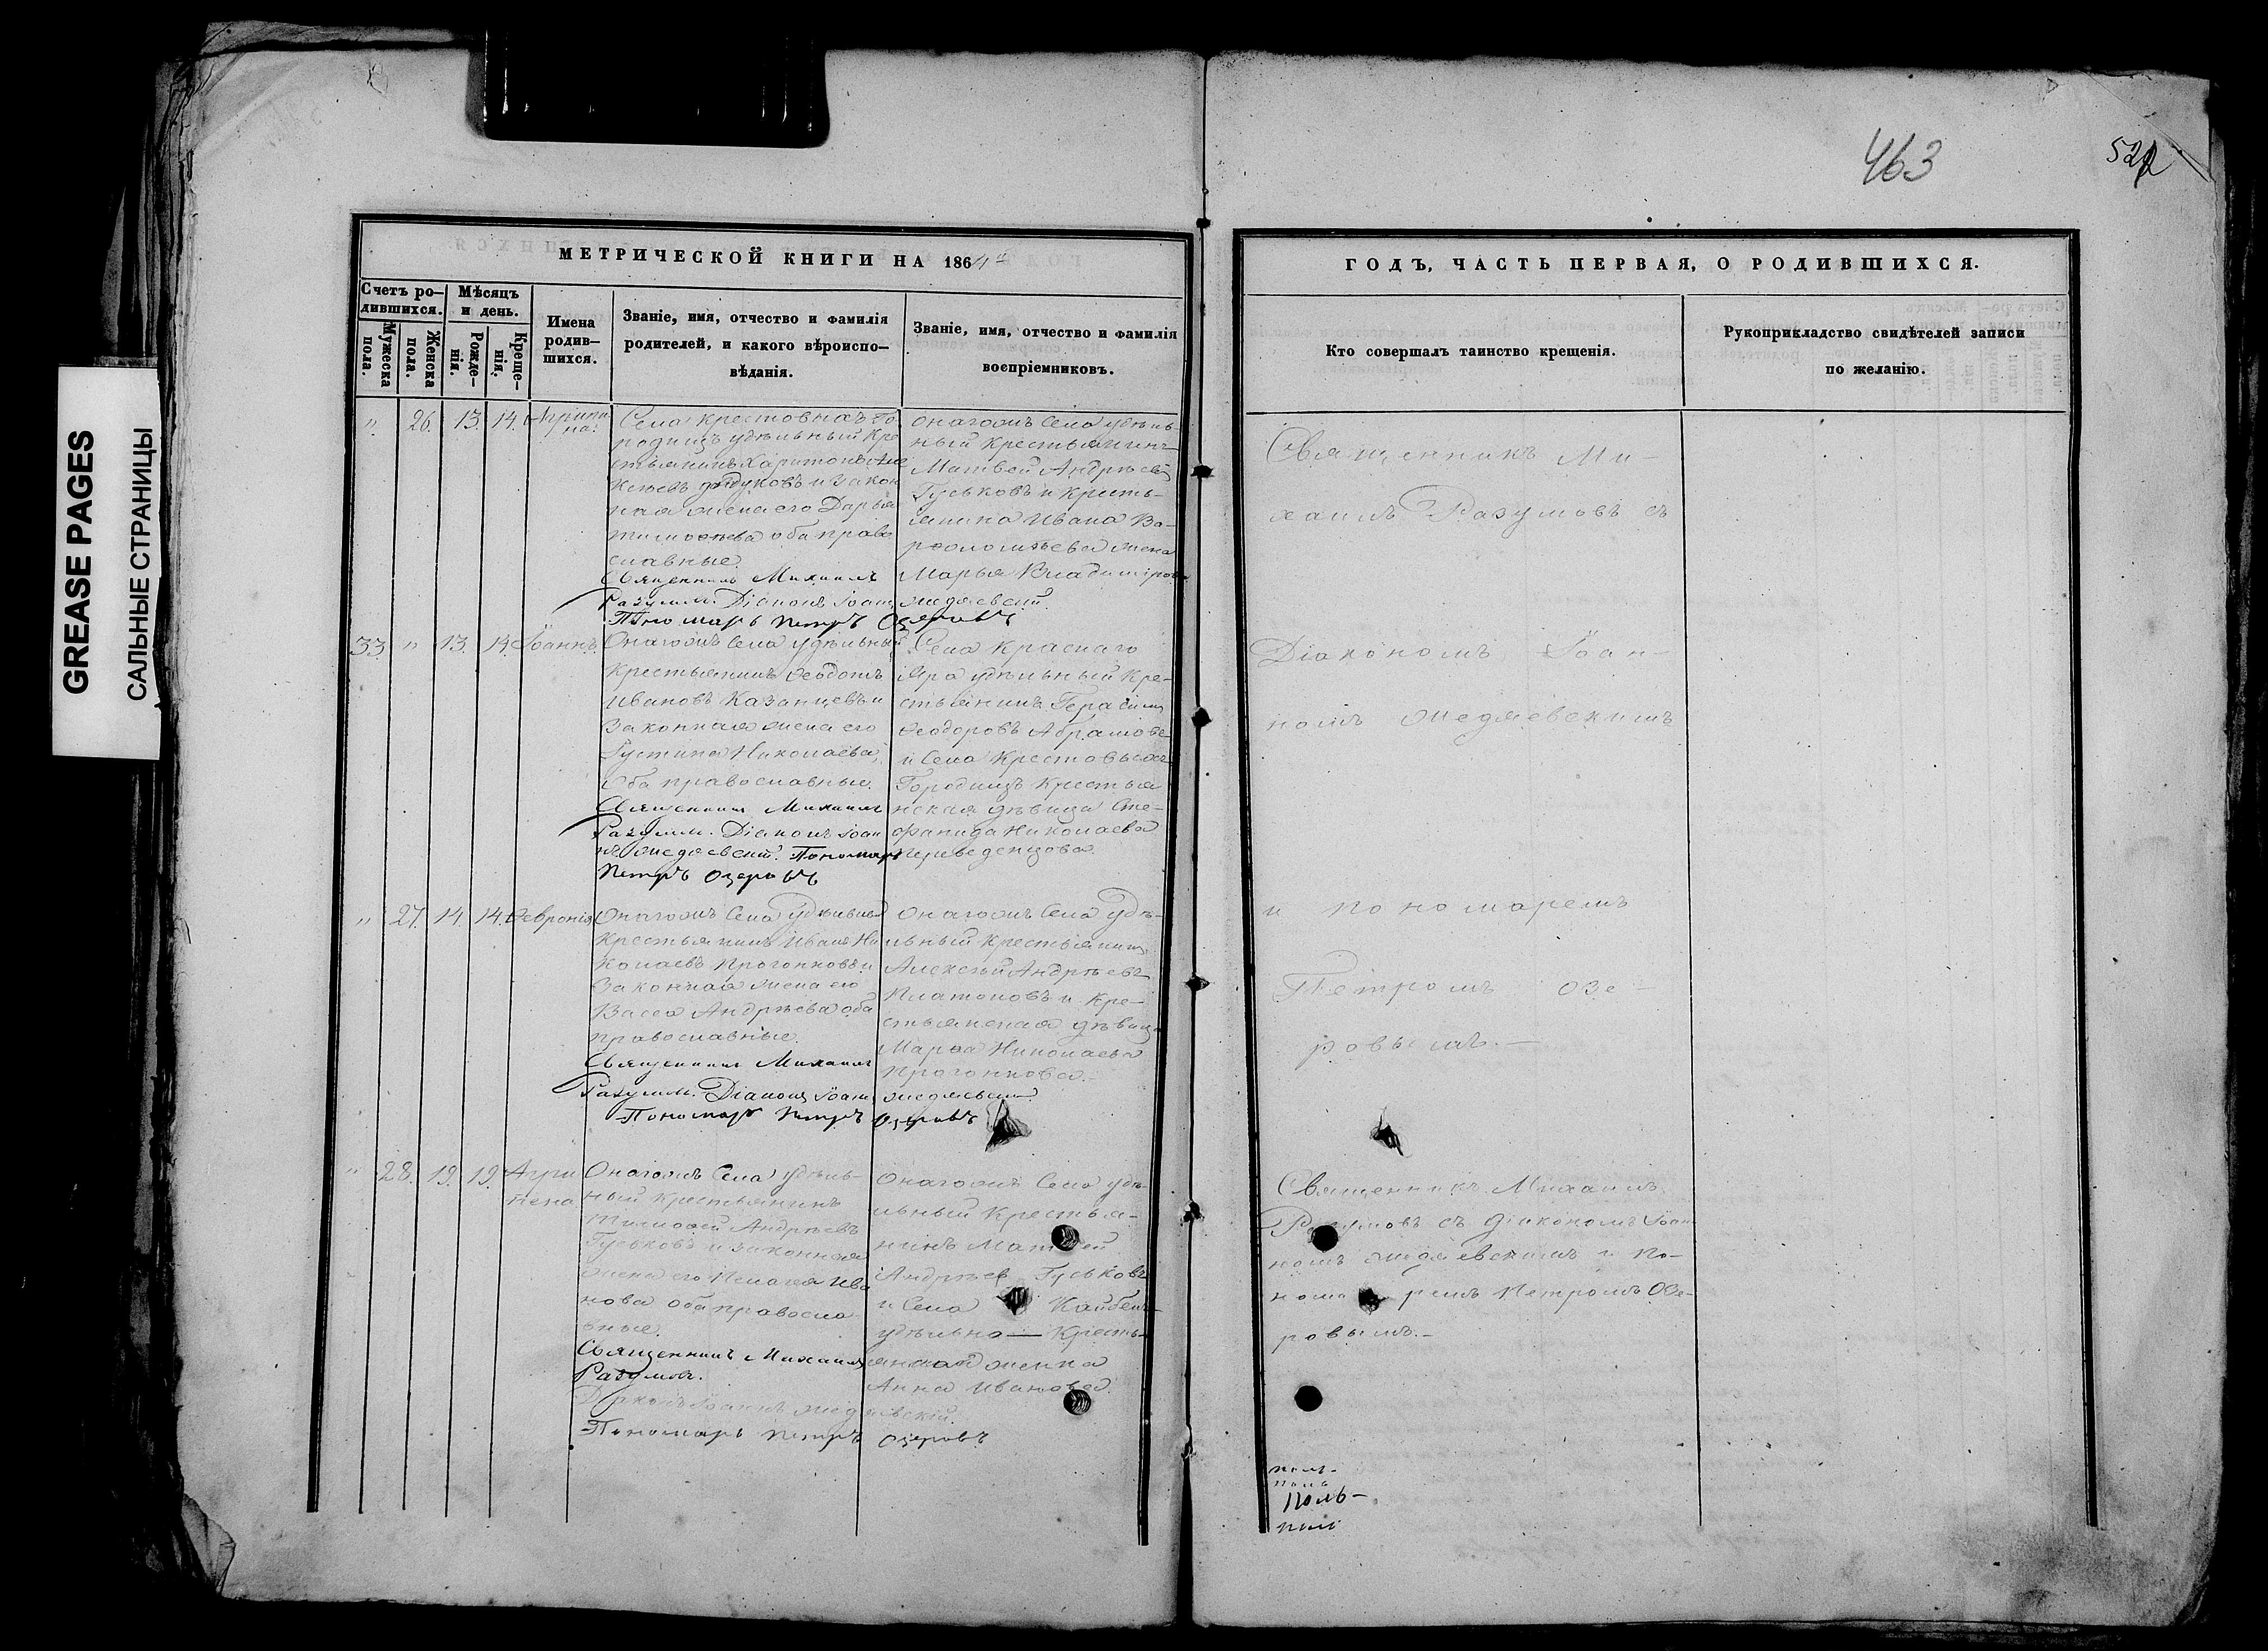 GREASE PAGES
САЛЬНЫЕ СТРАНИЦЫ
463
МЕТРИЧЕСКОЙ КНИГИ НА 1864
Счетъ ро-
дившихся.
Мужеска пола.
Женска пола.
Мѣсяцъ
и день.
Рожде-
нія.
Креще-
нія.
Имена
родив-
шихся.
Званіе, имя, отчество и фамилія
родителей, и какого вѣроиспо-
вѣданія.
Званіе, имя, отчество и фамилія
воспріемниковъ.
" 26. 13. 14. Агрипи
на.
Села Крестовыхъ Го-
родищъ удѣльный Кре
стьянинъ Харитонъ Але
ксѣевъ и закон
ная жена его Дарья
Тимоѳеева оба право
славные.
Священникъ Михаилъ
Разумовъ. Діаконъ Іоаннъ
Медяевскій.
Пономарь Петръ Озеровъ
Онагожъ Села удѣль-
ный Крестьянинъ
Матвей Андрѣевъ
Гуськовъ и Кресть-
янина Ивана Ва-
рѳоломѣева жена
Марья Владимірова
33 " 13. 14. Іоаннъ.
Онагожъ Села удѣльный
Крестьянинъ Ѳеодотъ
Ивановъ Казанцевъ и
Законная жена его
Густина Николаева,
Оба православные.
Священникъ Михаилъ
Разумовъ. Діаконъ Іоан
нъ Медяевскій. Пономарь
Петръ Озеровъ
Села Краснаго
Яра удѣльный Кре-
стьянинъ Герасимъ
Ѳеодоровъ Абрамовъ
и Села Крестовыхъ
Городищъ Крестья
нская дѣвица Сте-
фанида Николаева
Переведенцова.
" 27. 14. 14. Ѳевронія
Онагожъ Села Удѣльный
Крестьянинъ Иванъ Ни
колаевъ Прогонновъ и
Законная жена его
Васса Андрѣева оба
православные.
Священникъ Михаилъ
Разумовъ. Діаконъ Іоаннъ Медяевскій.
Пономарь Петръ Озеровъ
Онагожъ Села Удѣ-
льный Крестьянинъ
Алексѣй Андрѣевъ
Платоновъ и Кре-
стьянская дѣвица
Марья Николаева
Прогоннова.-
" 28. 19. 19. Агри
пена
Онагожъ Села удѣль-
ный Крестьянинъ
Тимоѳей Андрѣевъ
Гуськовъ и законная
жена его Пелагея Ива
нова оба правосла
вные.
Священникъ Михаилъ
Разумовъ.
Діаконъ Іоаннъ Медяевскій.
Пономарь Петръ Озеровъ
Онагожъ Села удѣ-
льный Крестья-
нинъ Матвей
Андрѣев Гуськовъ
и Села Кайбелъ-
удѣльно— Кресть-
янская женка
Анна Иванова.
ГОДЪ, ЧАСТЬ ПЕРВАЯ, О РОДИВШИХСЯ.
Кто совершалъ таинство крещенія.
Рукоприкладство свидѣтелей записи
по желанію.
Священникъ Ми-
хаилъ Разумовъ съ
Діакономъ Іоан-
номъ Медяевскимъ
и пономаремъ
Петромъ Озе-
ровымъ.—
Священникъ Михаилъ
Разумовъ съ діакономъ Іоан
номъ Медяевскимъ и По-
номаремъ Петромъ Озе-
ровымъ.-